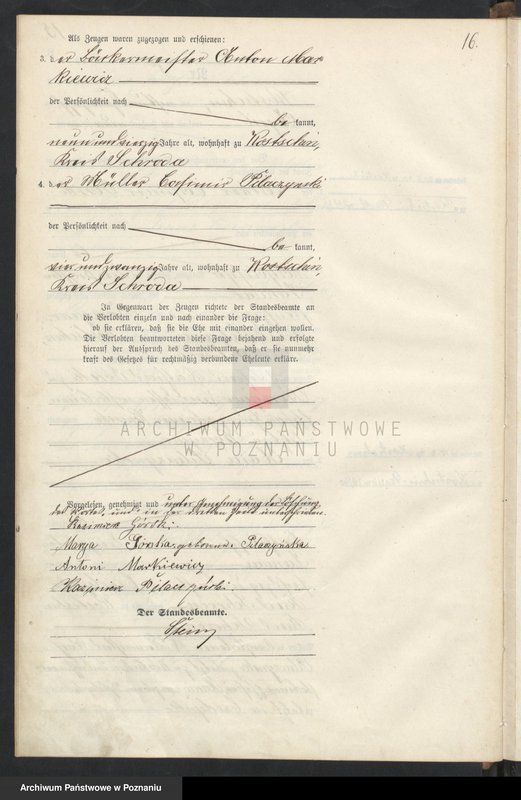 16.
Als Zeugen waren zugezogen und erschienen:
3. der Bäckermeister Anton Mar
kiewicz
der Persönlichkeit nach
be kannt,
neun und vierzig Jahre alt, wohnhaft zu Kostschin,
Kreis Schroda
4. der Müller Casimir Pilaczynski
der Persönlichkeit nach
be kannt,
vier und zwanzig Jahre alt, wohnhaft zu Kostschin,
Kreis Schroda
In Gegenwart der Zeugen richtete der Standesbeamte an
die Verlobten einzeln und nach einander die Frage:
ob sie erklären, daß sie die Ehe mit einander eingehen wollen.
Die Verlobten beantworteten diese Frage bejahend und erfolgte
hierauf der Ausspruch des Standesbeamten, daß er sie nunmehr
kraft des Gesetzes für rechtmäßig verbundene Eheleute erkläre.
ARCHIWUM PAŃSTWOWE
W POZNANIU
Vorgelesen, genehmigt und unter Genehmigung der Löschung
der und in der dritten Zeile unterschrieben.
Kasimierz Górski.
Marya Górska, geborene Pilaczyńska
Antoni Markiewicz
Kazimierz Pilaczyński.
Der Standesbeamte.
Archiwum Państwowe w Poznaniu